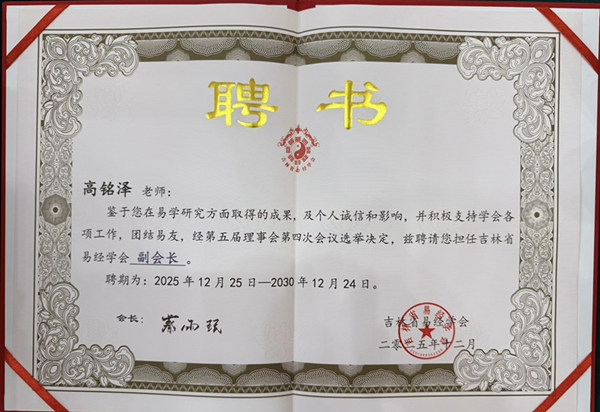 聘书
高铭泽 老师：
鉴于您在易学研究方面取得的成果，及个人诚信和影响，并积极支持学会各
项工作，团结易友，经第五届理事会第四次会议选举决定，兹聘请您担任吉林省
易经学会 副会长 。
聘期为：2025 年 12 月 25 日—2030 年 12 月 24 日。
会长：
吉林省易经学会
二〇二五年十二月